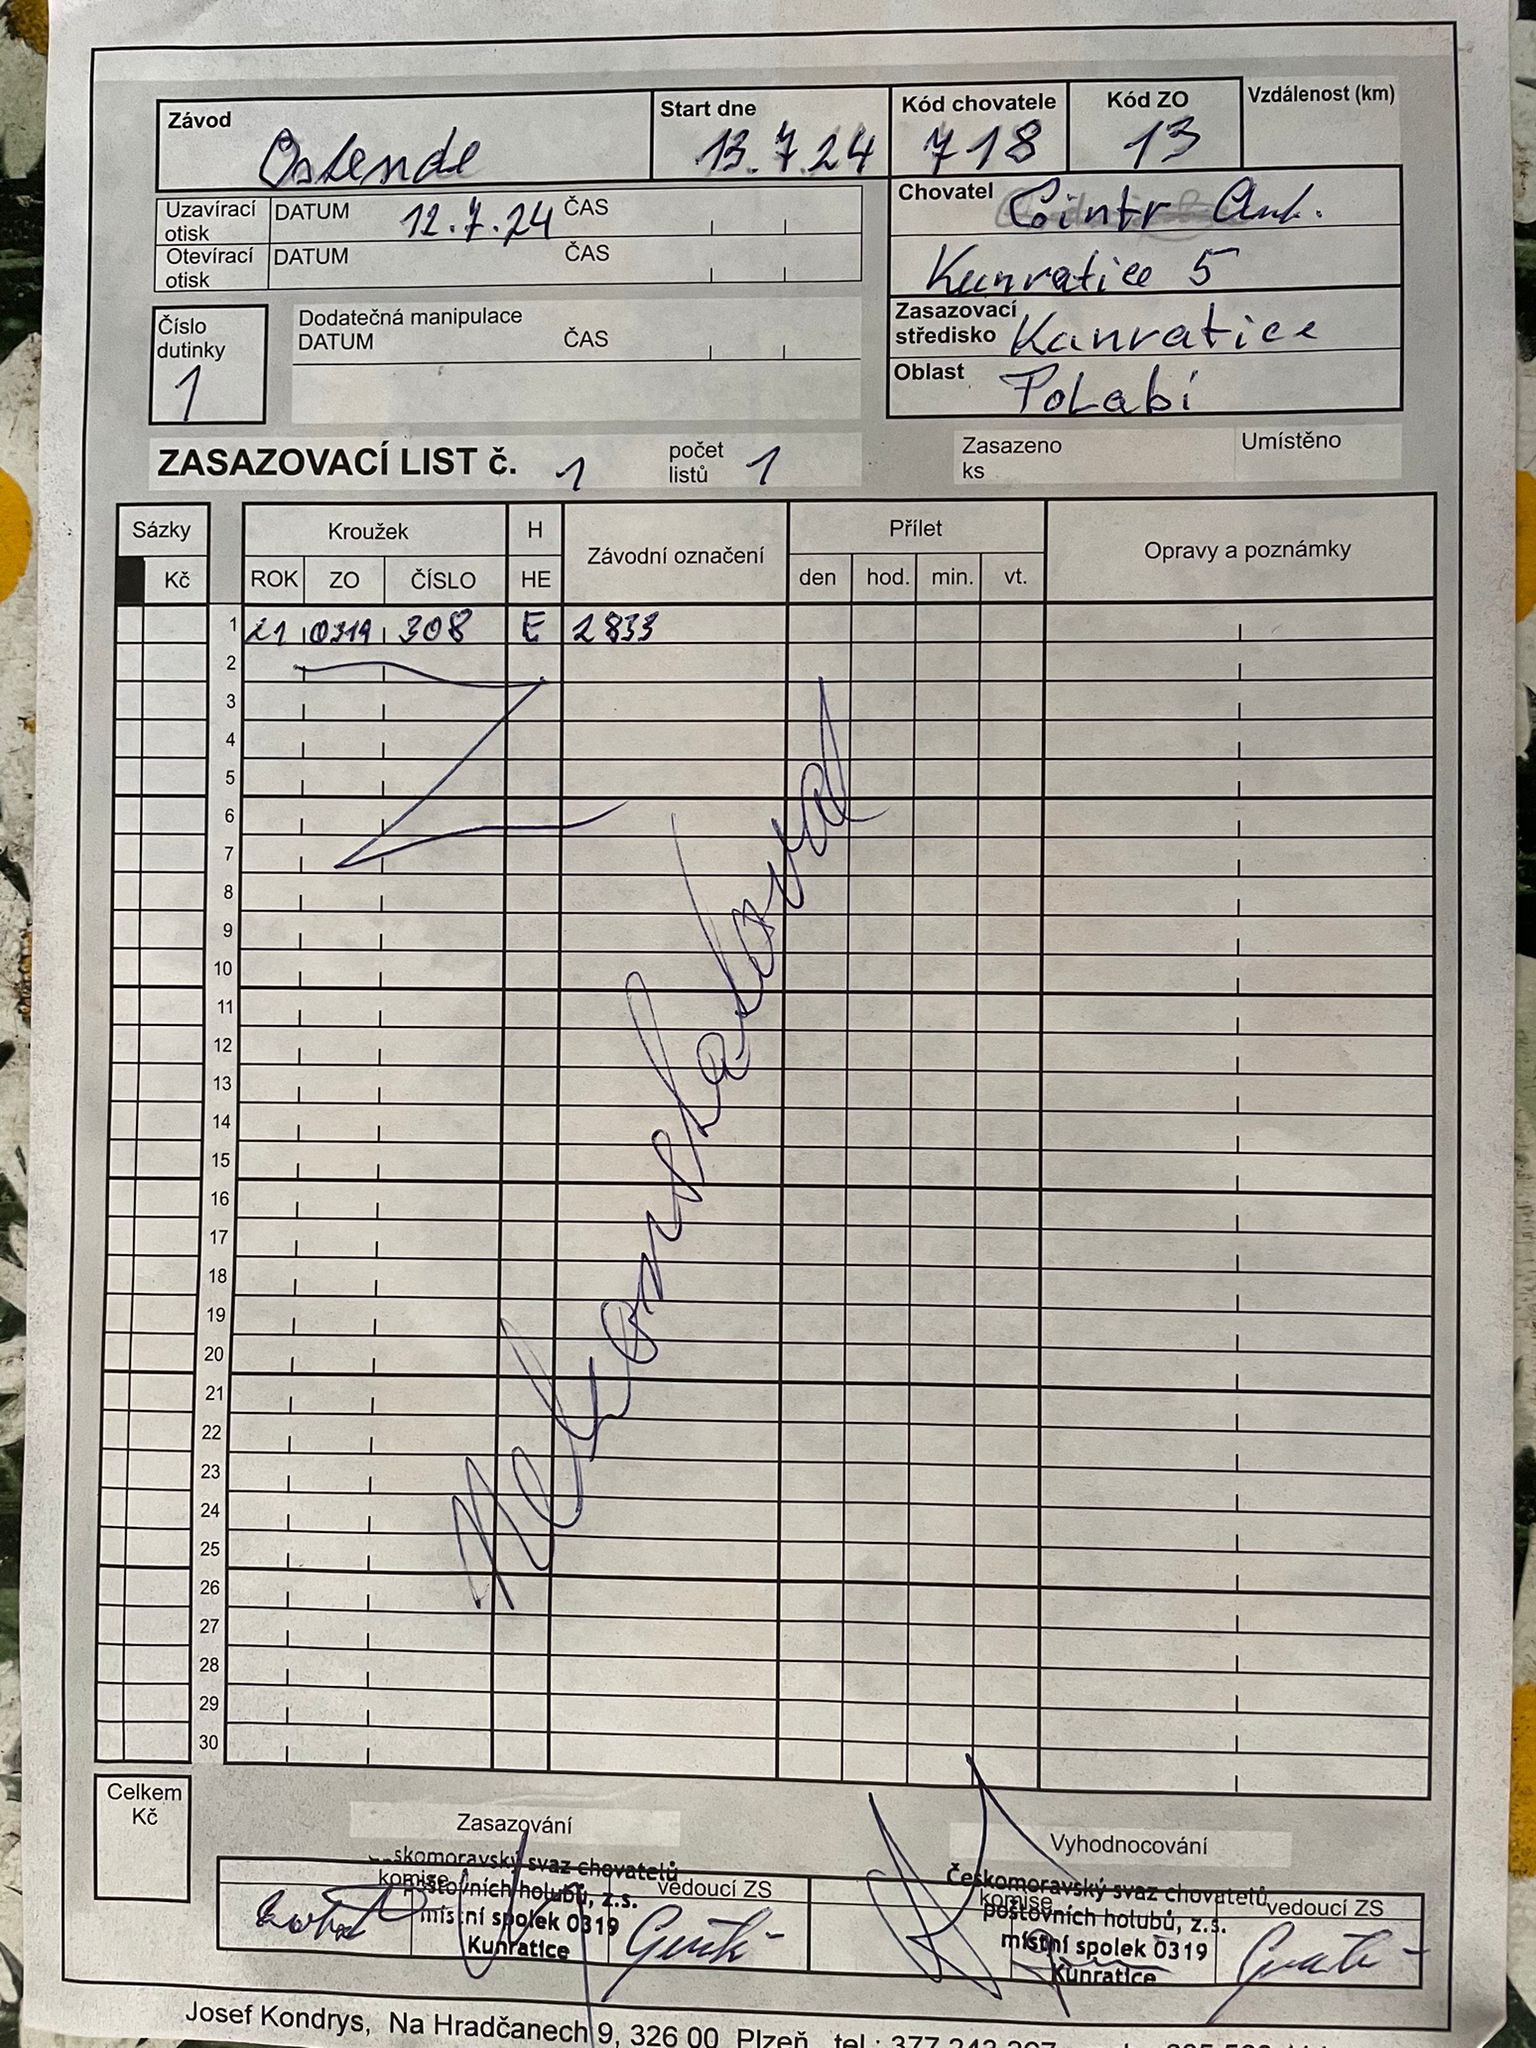 Závod Start dne Kód chovatele Kód ZO Vzdálenost (km)
Ostende 13.7.24 718 13
Uzavírací otisk DATUM 12.7.24 ČAS
Otevírací otisk DATUM ČAS
Chovatel Cintr Ant.
Kunratice 5
Zasazovací středisko Kunratice
Oblast PoLabí
Číslo dutinky 1
Dodatečná manipulace
DATUM ČAS
ZASAZOVACÍ LIST č. 1 počet listů 1 Zasazeno ks Umístěno
Sázky Kroužek H Závodní označení Přílet Opravy a poznámky
Kč ROK ZO ČÍSLO HE den hod. min. vt.
1 21 0319 308 E 2833
2
3
4
5
6
7
8
9
10
11
12
13
14
15
16
17
18
19
20
21
22
23
24
25
26
27
28
29
30
Nekonstatoval
Celkem Kč
Zasazování Vyhodnocování
komise vedoucí ZS komise vedoucí ZS
skomoravský svaz chovatelů
poštovních holubů, z.s.
místní spolek 0319
Kunratice
Českomoravský svaz chovatelů
poštovních holubů, z.s.
místní spolek 0319
Kunratice
Josef Kondrys, Na Hradčanech 9, 326 00 Plzeň, tel.: 377 242 207